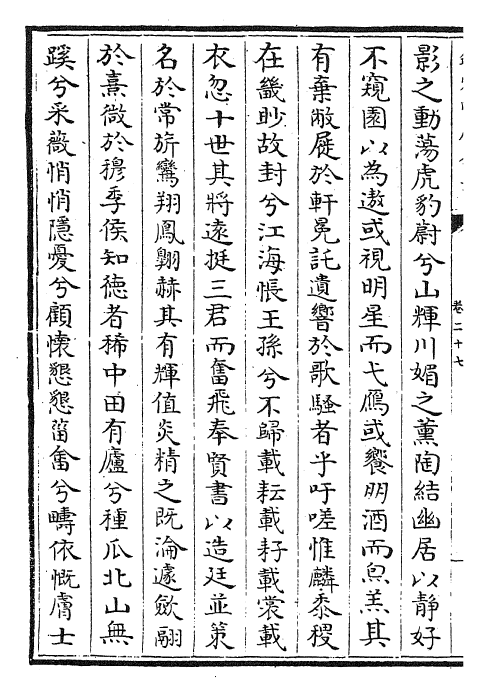 影之動蕩虎豹蔚兮山輝川媚之薰陶結幽居以静好
不窺園以為遨或視明星而弋鴈或饗朋酒而炰羔其
有棄敝屣於軒冕託遺響於歌騷者乎吁嗟惟麟黍稷
在畿眇故封兮江海悵王孫兮不歸載耘載耔載裳載
衣忽十世其將遠挺三君而奮飛奉賢書以造廷並策
名於常旂鸞翔鳳翾赫其有輝值炎精之既淪遽歛翮
於熹微於穆季侯知德者稀中田有廬兮種瓜北山無
蹊兮采薇悄悄隱憂兮顧懐懇懇菑畬兮疇依慨膚士
卷二十七